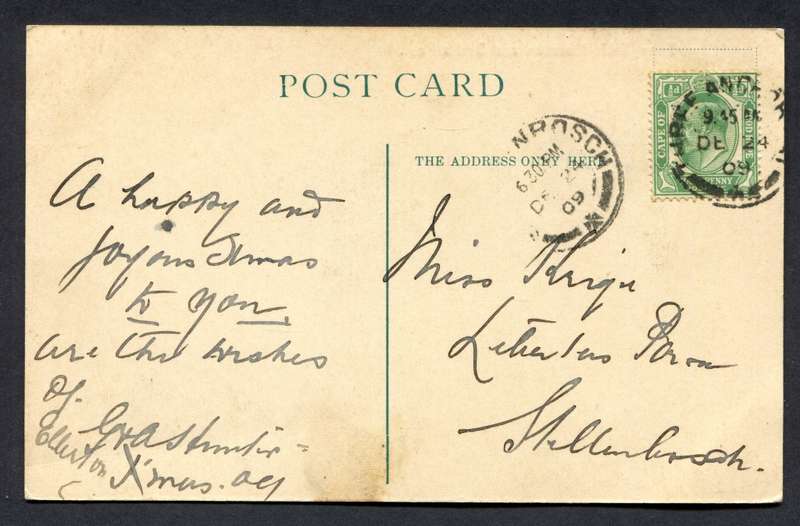 POST CARD
THE ADDRESS ONLY HERE
A happy and
joyous Xmas
to you
are the wishes
of
G & A Hunter -
Ellerton
Xmas. 09
Miss Krige
Stellenbosch.
NBOSCH
6.30 PM
DE 24
09
THREE ANCHOR
9.45 AM
DE 24
09
CAPE OF
GOOD HOPE
PENNY